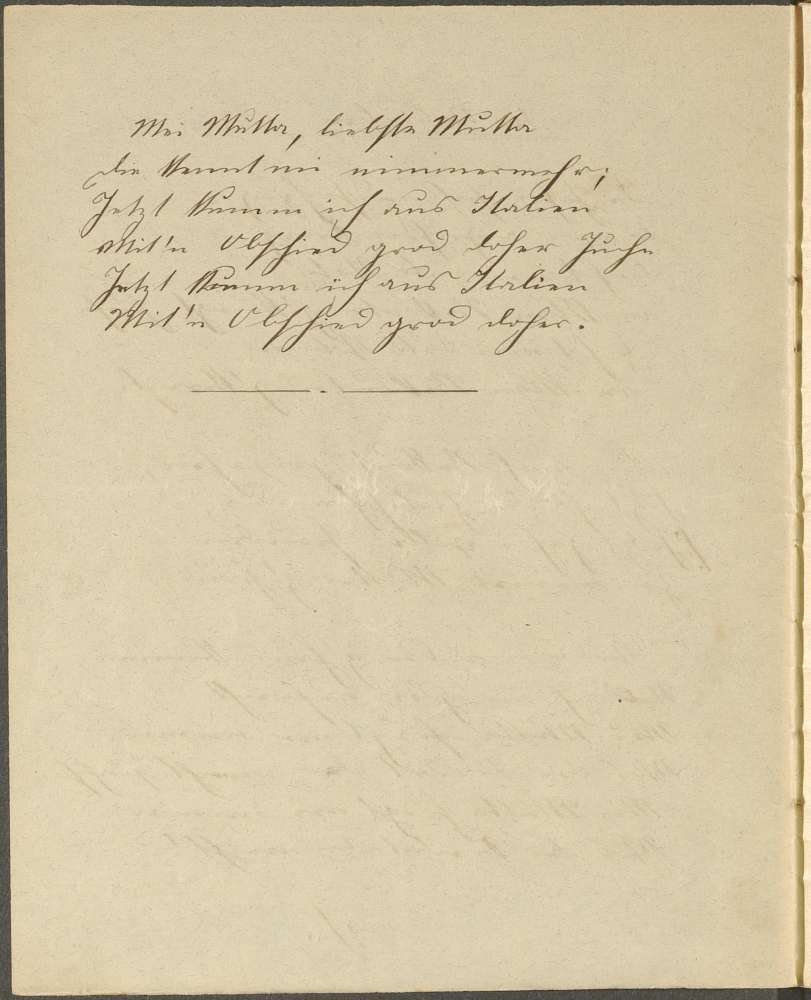 Mei Mutta, liebste Mutta
die kennt mi nimmermehr;
Jetzt kumm ich aus Italien
Mit'n Obschied grod doher Juche
Jetzt kumm ich aus Italien
Mit'n Obschied grod doher.